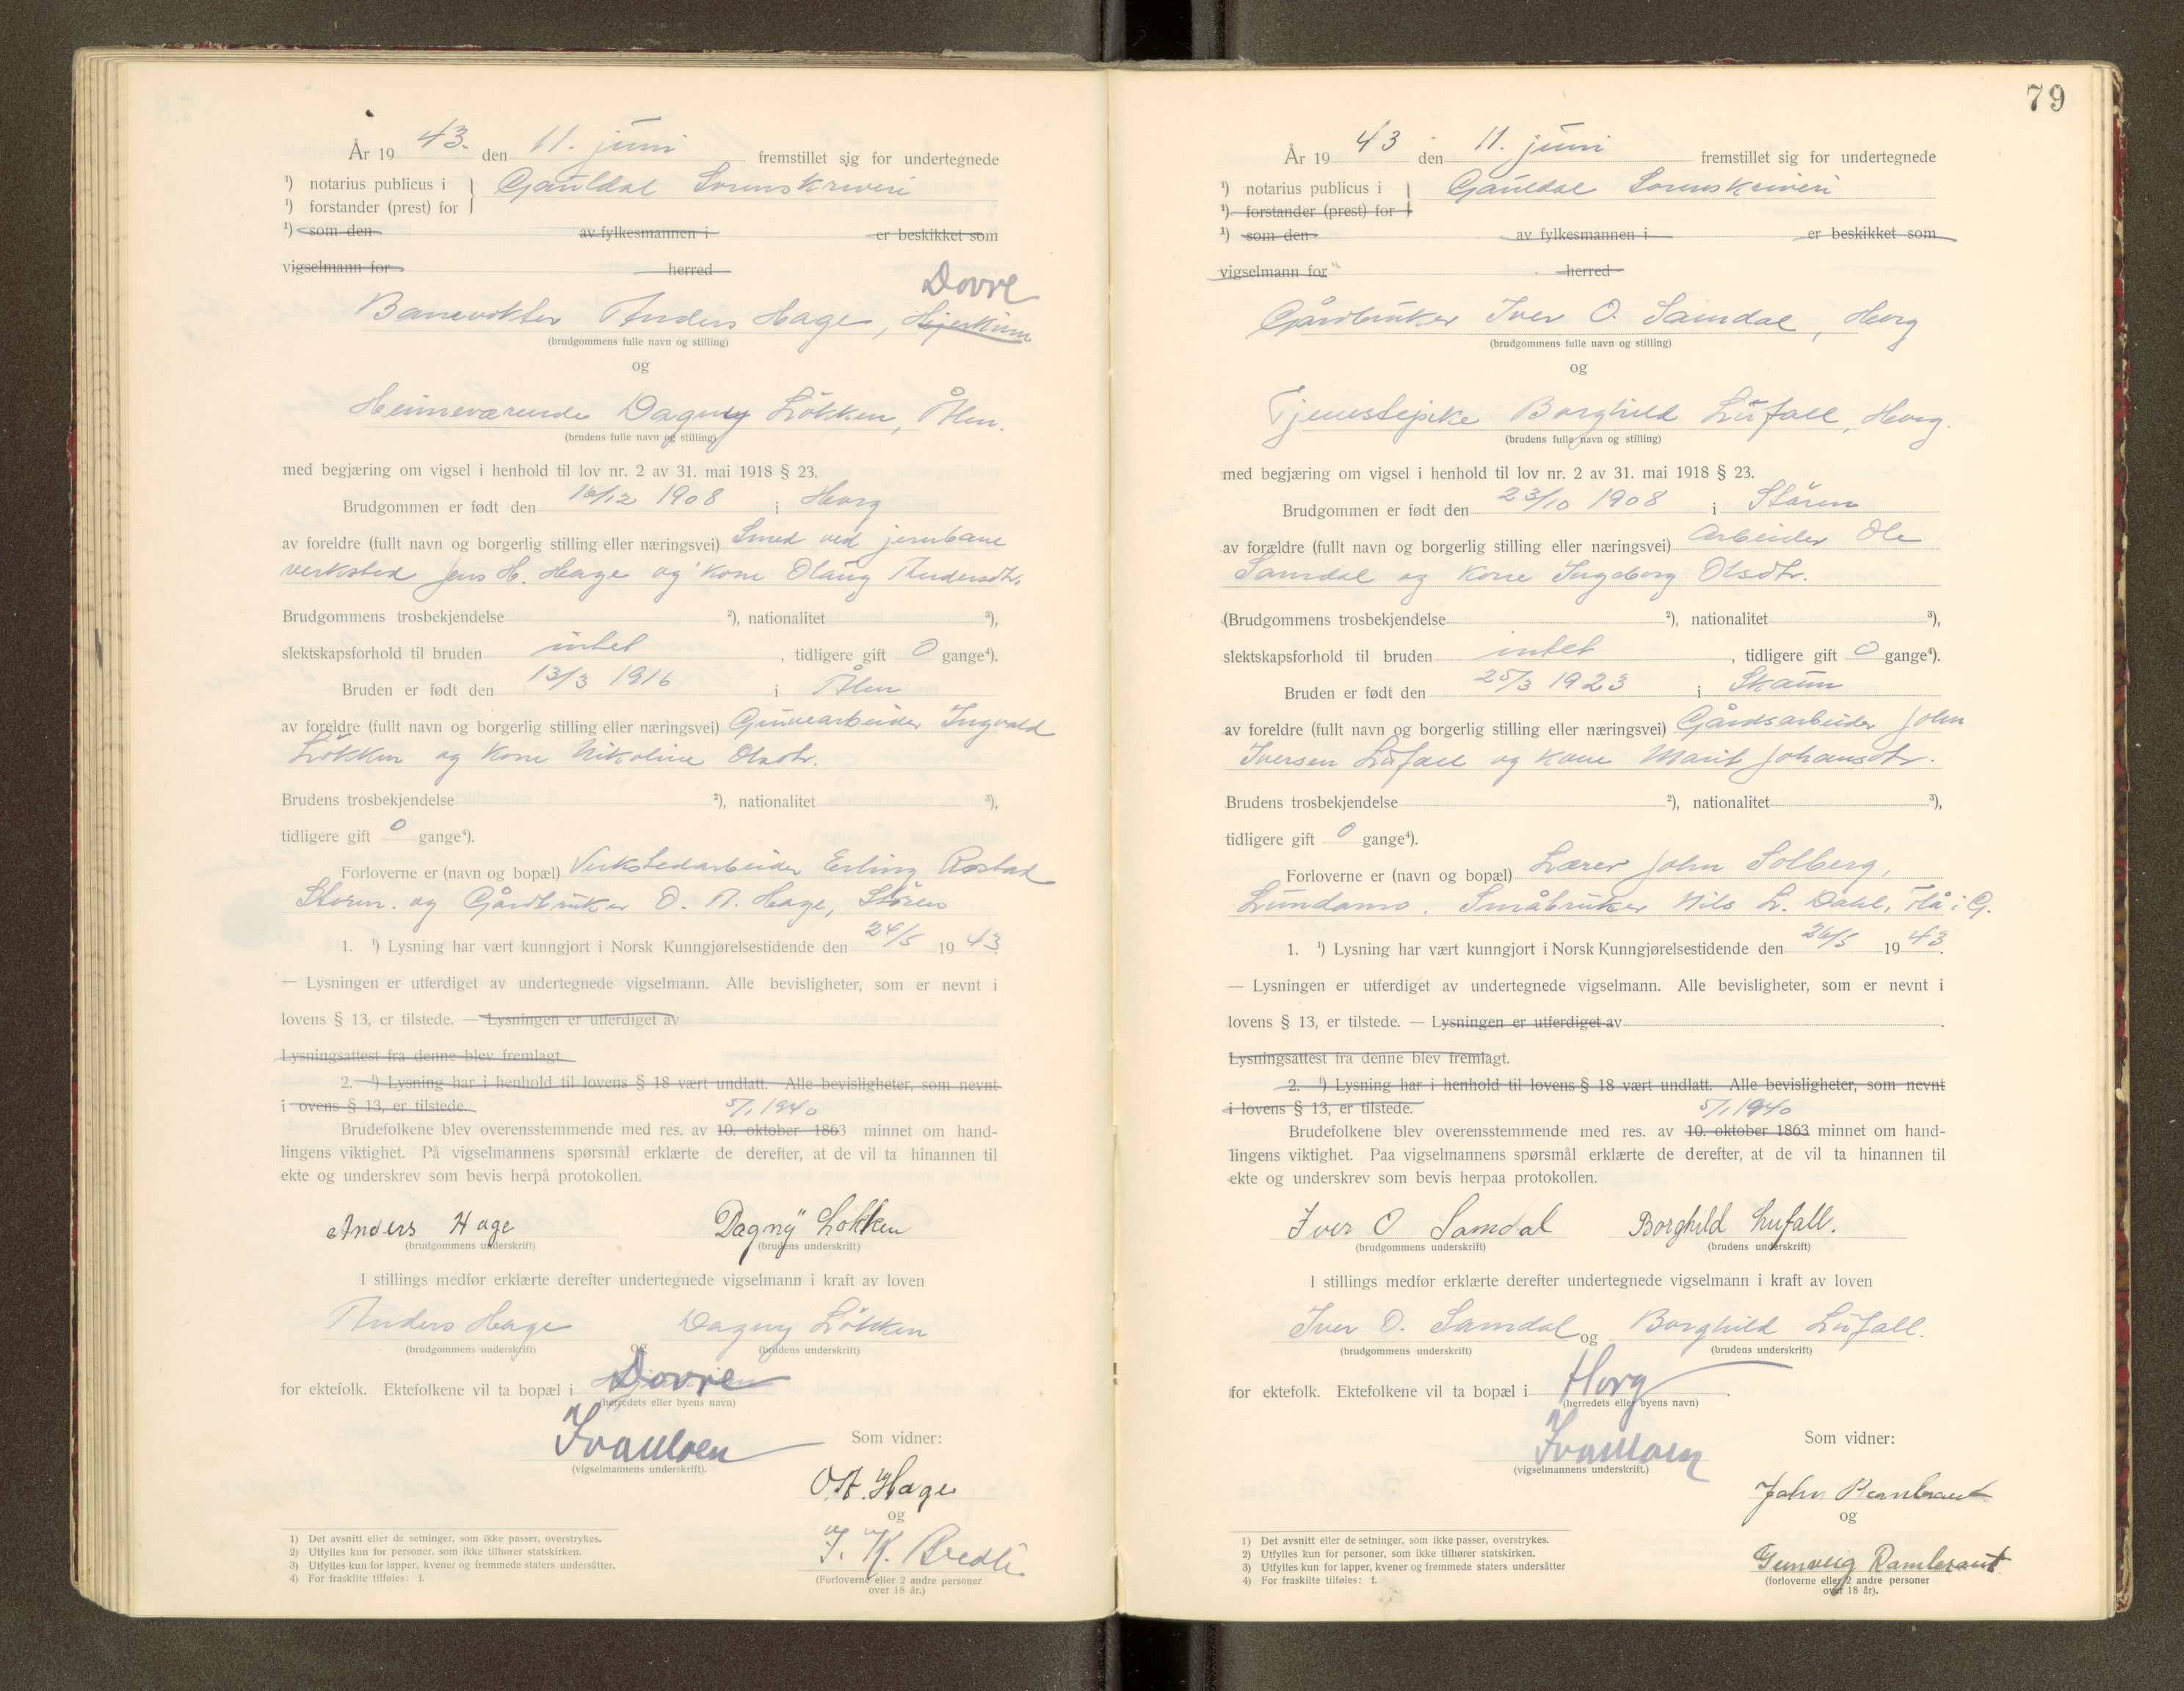 År 19 43. den 11. juni fremstillet sig for undertegnede
¹) notarius publicus i } Gauldal Sorenskriveri
¹) forstander (prest) for
¹) som den av fylkesmannen i er beskikket som
vigselmann for herred
Dovre
Banevokter Anders Hage, Hjerkinn
(brudgommens fulle navn og stilling)
og
Heimeværende Dagny Løkken, Ålen.
(brudens fulle navn og stilling)
med begjæring om vigsel i henhold til lov nr. 2 av 31. mai 1918 § 23.
Brudgommen er født den 16/12 1908 i Horg
av foreldre (fullt navn og borgerlig stilling eller næringsvei) Smed ved jernbane
verksted Jens H. Hage og kone Olaug Andersdtr.
Brudgommens trosbekjendelse ²), nationalitet ³),
slektskapsforhold til bruden intet , tidligere gift 0 gange⁴).
Bruden er født den 13/3 1916 i Ålen
av foreldre (fullt navn og borgerlig stilling eller næringsvei) Gruvearbeider Ingvald
Løkken og kone Nikoline Olsdtr.
Brudens trosbekjendelse ²), nationalitet ³),
tidligere gift 0 gange⁴).
Forloverne er (navn og bopæl) Verkstedarbeider Erling Rostad
Støren. og Gårdbruker O. A. Hage, Støren
1. ¹) Lysning har vært kunngjort i Norsk Kunngjørelsestidende den 24/5 19 43.
— Lysningen er utferdiget av undertegnede vigselmann. Alle bevisligheter, som er nevnt i
lovens § 13, er tilstede. — Lysningen er utferdiget av
Lysningsattest fra denne blev fremlagt
2. ¹) Lysning har i henhold til lovens § 18 vært undlatt. Alle bevisligheter, som nevnt
i ovens § 13, er tilstede. 5/1 1940
Brudefolkene blev overensstemmende med res. av 10. oktober 1863 minnet om hand-
lingens viktighet. På vigselmannens spørsmål erklærte de derefter, at de vil ta hinannen til
ekte og underskrev som bevis herpå protokollen.
Anders Hage Dagny Løkken
(brudgommens underskrift) (brudens underskrift)
I stillings medfør erklærte derefter undertegnede vigselmann i kraft av loven
Anders Hage og Dagny Løkken
(brudgommens underskrift) (brudens underskrift)
for ektefolk. Ektefolkene vil ta bopæl i Dovre
(herredets eller byens navn)
(vigselmannens underskrift).
Som vidner:
O. A. Hage
og
(Forloverne eller 2 andre personer
over 18 år.)
1) Det avsnitt eller de setninger, som ikke passer, overstrykes.
2) Utfylles kun for personer, som ikke tilhører statskirken.
3) Utfylles kun for lapper, kvener og fremmede staters undersåtter.
4) For fraskilte tilføies: f.
79
År 19 43 den 11. juni fremstillet sig for undertegnede
¹) notarius publicus i } Gauldal Sorenskriveri
¹) forstander (prest) for
¹) som den av fylkesmannen i er beskikket som
vigselmann for herred
Gårdbruker Iver O. Samdal, Horg
(brudgommens fulle navn og stilling)
og
Tjenestepike Borghild Lufall, Horg.
(brudens fulle navn og stilling)
med begjæring om vigsel i henhold til lov nr. 2 av 31. mai 1918 § 23.
Brudgommen er født den 23/10 1908 i Støren
av forældre (fullt navn og borgerlig stilling eller næringsvei) Arbeider Ole
Samdal og kone Ingeborg Olsdtr.
(Brudgommens trosbekjendelse ²), nationalitet ³),
slektskapsforhold til bruden intet , tidligere gift 0 gange⁴).
Bruden er født den 25/3 1923 i Skaun
av foreldre (fullt navn og borgerlig stilling eller næringsvei) Gårdsarbeider John
Iversen Lufall og kone Marit Johansdtr.
Brudens trosbekjendelse ²), nationalitet ³),
tidligere gift 0 gange⁴).
Forloverne er (navn og bopæl) Lærer John Solberg,
Lundamo. Småbruker Nils L. Dahl, Flå i G.
1. ¹) Lysning har vært kunngjort i Norsk Kunngjørelsestidende den 26/5 19 43.
— Lysningen er utferdiget av undertegnede vigselmann. Alle bevisligheter, som er nevnt i
lovens § 13, er tilstede. — Lysningen er utferdiget av
Lysningsattest fra denne blev fremlagt.
2. ¹) Lysning har i henhold til lovens § 18 vært undlatt. Alle bevisligheter, som nevnt
i lovens § 13, er tilstede. 5/1 1940
Brudefolkene blev overensstemmende med res. av 10. oktober 1863 minnet om hand-
lingens viktighet. Paa vigselmannens spørsmål erklærte de derefter, at de vil ta hinannen til
ekte og underskrev som bevis herpaa protokollen.
Iver O Samdal Borghild Lufall.
(brudgommens underskrift) (brudens underskrift)
I stillings medfør erklærte derefter undertegnede vigselmann i kraft av loven
Iver O. Samdal og Borghild Lufall.
(brudgommens underskrift) (brudens underskrift)
for ektefolk. Ektefolkene vil ta bopæl i Horg.
(herredets eller byens navn)
(vigselmannens underskrift.)
Som vidner:
John
og
Gunveig Rambraut
(forloverne eller 2 andre personer
over 18 år).
1) Det avsnitt eller de setninger, som ikke passer, overstrykes.
2) Utfylles kun for personer, som ikke tilhører statskirken.
3) Utfylles kun for lapper, kvener og fremmede staters undersåtter
4) For fraskilte tilføies: f.